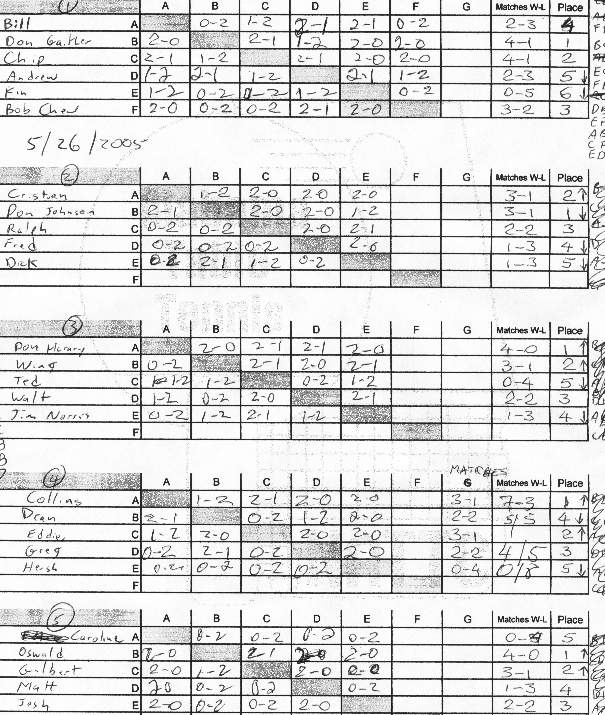 1 A B C D E F G Matches W-L Place
Bill A 0-2 1-2 2-1 2-1 0-2 2-3 4
Don Gaither B 2-0 2-1 1-2 2-0 2-0 4-1 1
Chip C 2-1 1-2 2-1 2-0 2-0 4-1 2
Andrew D 1-2 2-1 1-2 2-1 1-2 2-3 5↓
Kin E 1-2 0-2 0-2 1-2 0-2 0-5 6↓
Bob Chew F 2-0 0-2 0-2 2-1 2-0 3-2 3
5/26/2005
2 A B C D E F G Matches W-L Place
Cristian A 1-2 2-0 2-0 2-0 3-1 2↑
Don Johnson B 2-1 2-0 2-0 1-2 3-1 1↓
Ralph C 0-2 0-2 2-0 2-1 2-2 3
Fred D 0-2 0-2 0-2 2-0 1-3 4↓
Dick E 0-2 2-1 1-2 0-2 1-3 5↓
F
Tennis
3 A B C D E F G Matches W-L Place
Don A 2-0 2-1 2-1 2-0 4-0 1↑
Wing B 0-2 2-1 2-0 2-1 3-1 2↑
Ted C 1-2 1-2 0-2 1-2 0-4 5↓
Walt D 1-2 0-2 2-0 2-1 2-2 3
Jim Norris E 0-2 1-2 2-1 1-2 1-3 4↓
F
MATCHES
4 A B C D E F G Matches W-L Place
Collins A 1-2 2-1 2-0 2-0 3-1 7-3 1↑
Dean B 2-1 0-2 1-2 2-0 2-2 5/5 4↓
Eddie C 1-2 2-0 2-0 2-0 3-1 2↑
Greg D 0-2 2-1 0-2 2-0 2-2 4/5 3
Hersh E 0-2 0-2 0-2 0-2 0-4 0/8 5↓
F
5 A B C D E F G Matches W-L Place
Caroline A 0-2 0-2 0-2 0-2 0-4 5
Oswald B 2-0 2-1 2-0 2-0 4-0 1↑
Gilbert C 2-0 1-2 2-0 2-0 3-1 2↑
Matt D 2-0 0-2 0-2 0-2 1-3 4
Josh E 2-0 0-2 0-2 2-0 2-2 3